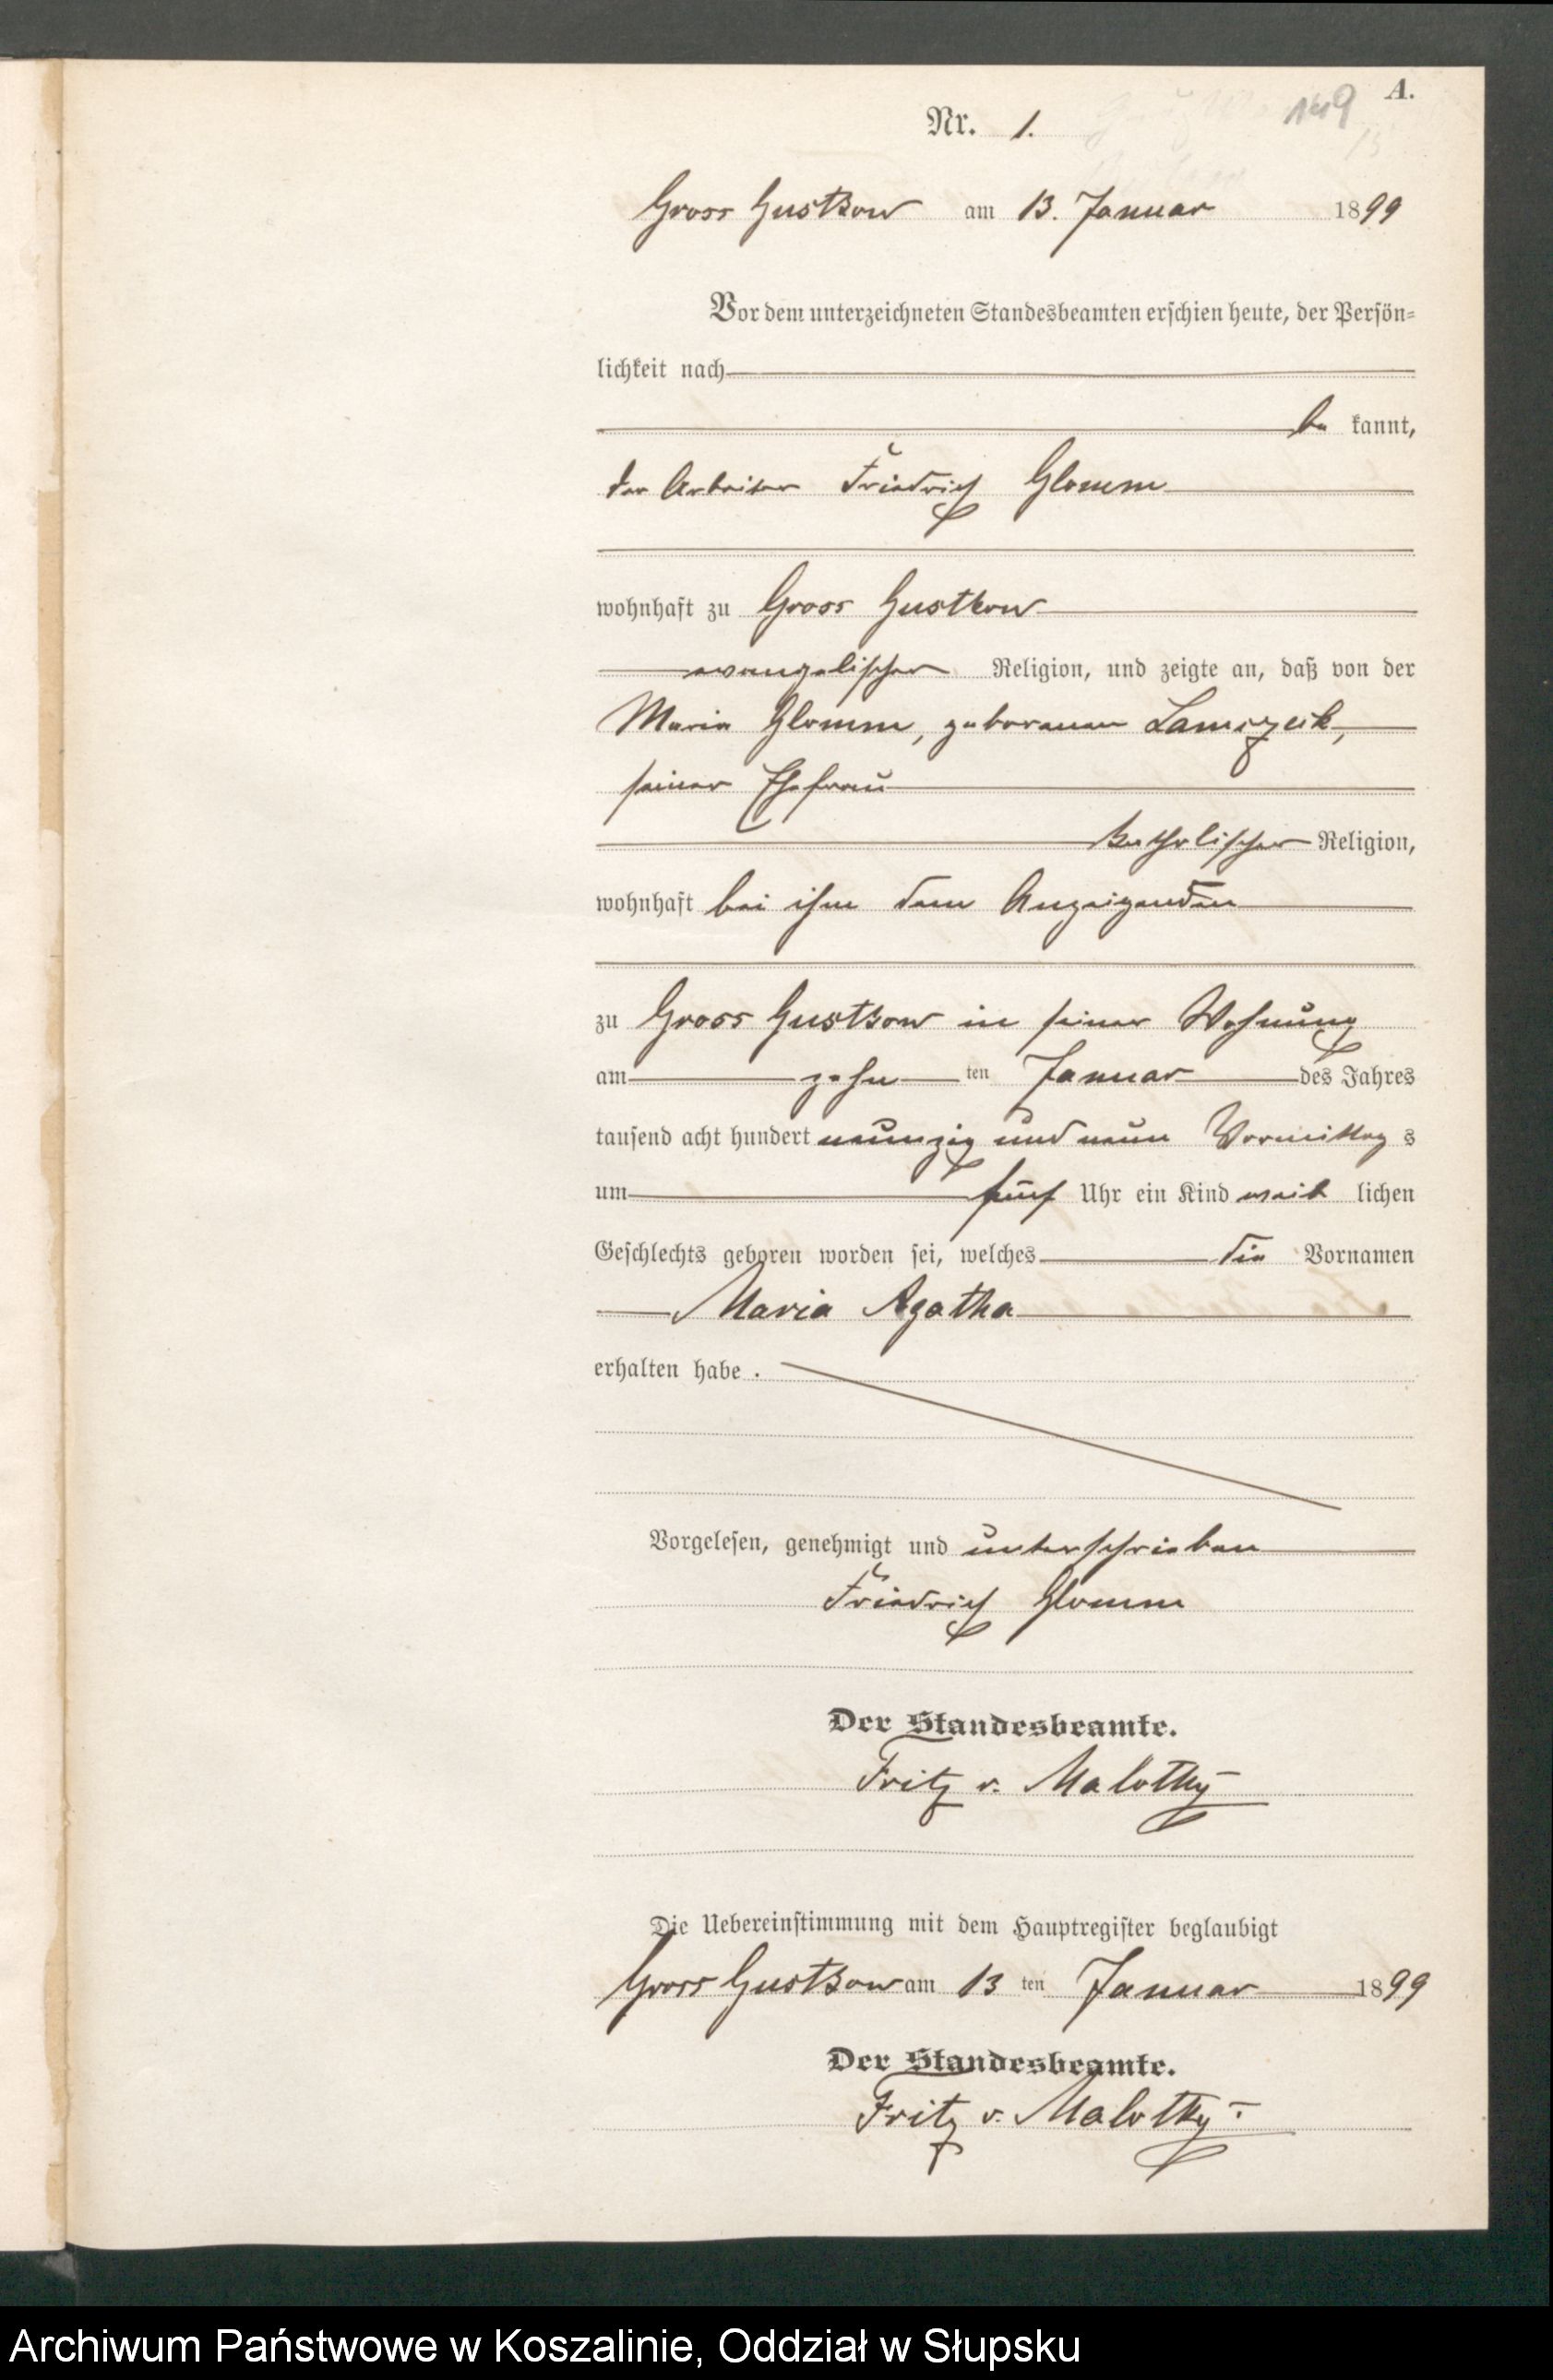 A.
149
Nr. 1.
Gross Gustkow am 13. Januar 1899
Vor dem unterzeichneten Standesbeamten erschien heute, der Persön=
lichkeit nach
be kannt,
der Arbeiter Friedrich Glomm
wohnhaft zu Gross Gustkow
evangelischer Religion, und zeigte an, daß von der
Maria Glomm, geborenen
seiner Ehefrau
katholischer Religion,
wohnhaft bei ihm dem Anzeigenden
zu Gross Gustkow in seiner Wohnung
am zehn ten Januar des Jahres
tausend acht hundert neunzig und neun Vormittag s
um fünf Uhr ein Kind weib lichen
Geschlechts geboren worden sei, welches die Vornamen
Maria Agatha
erhalten habe .
Vorgelesen, genehmigt und unterschrieben
Friedrich Glomm
Der Standesbeamte.
Fritz v. Malottky
Die Uebereinstimmung mit dem Hauptregister beglaubigt
Gross Gustkow am 13 ten Januar 1899
Der Standesbeamte.
Fritz v. Malottky.
Archiwum Państwowe w Koszalinie, Oddział w Słupsku